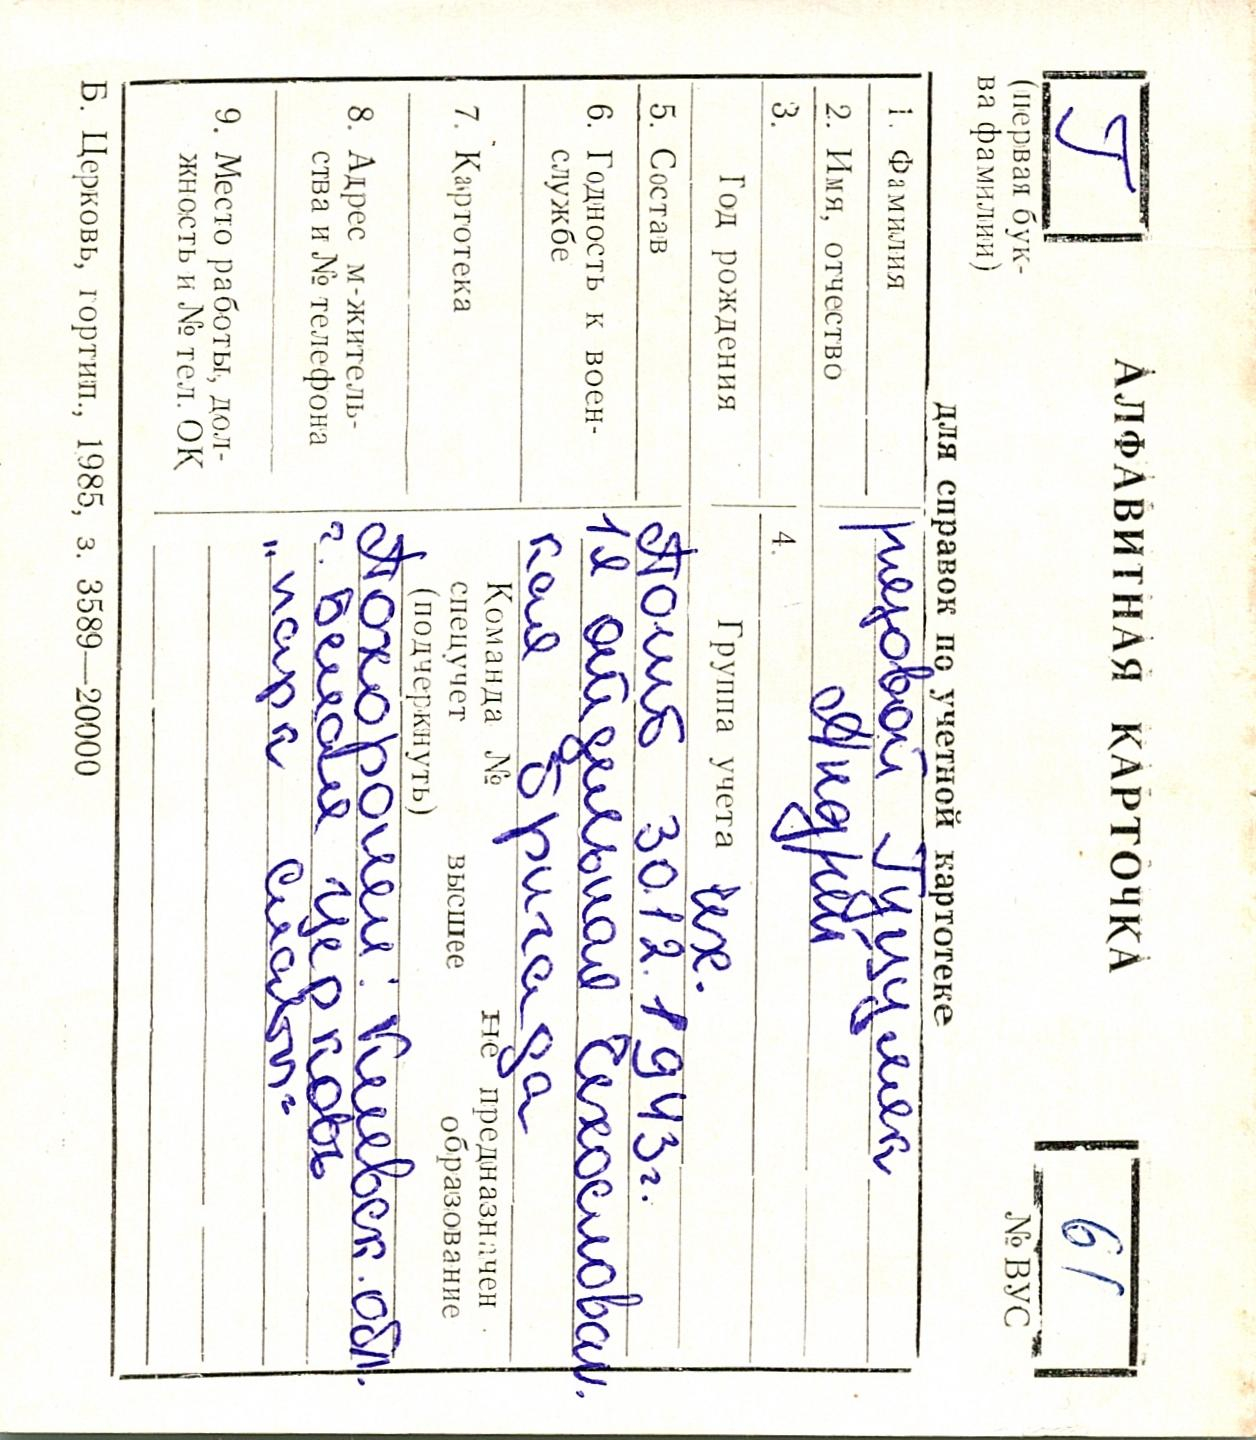 Г
(первая бук-
ва фамилии)
АЛФАВИТНАЯ КАРТОЧКА
для справок по учетной картотеке
61
№ ВУС
1. Фамилия рядовой Гуцуляк
2. Имя, отчество Андрей
3. Год рождения
4. Группа учета чех.
5. Состав Погиб 30.12.1943г.
6. Годность к воен-
службе
1я отдельная Чехословац.
кая бригада
7. Картотека
Команда № не предназначен
спецучет высшее образование
(подчеркнуть)
8. Адрес м-житель-
ства и № телефона
Похоронен: Киевск. обл.
г. Белая Церковь
„парк славы"
9. Место работы, дол-
жность и № тел. ОК
Б. Церковь, гортип., 1985, з. 3589—20000